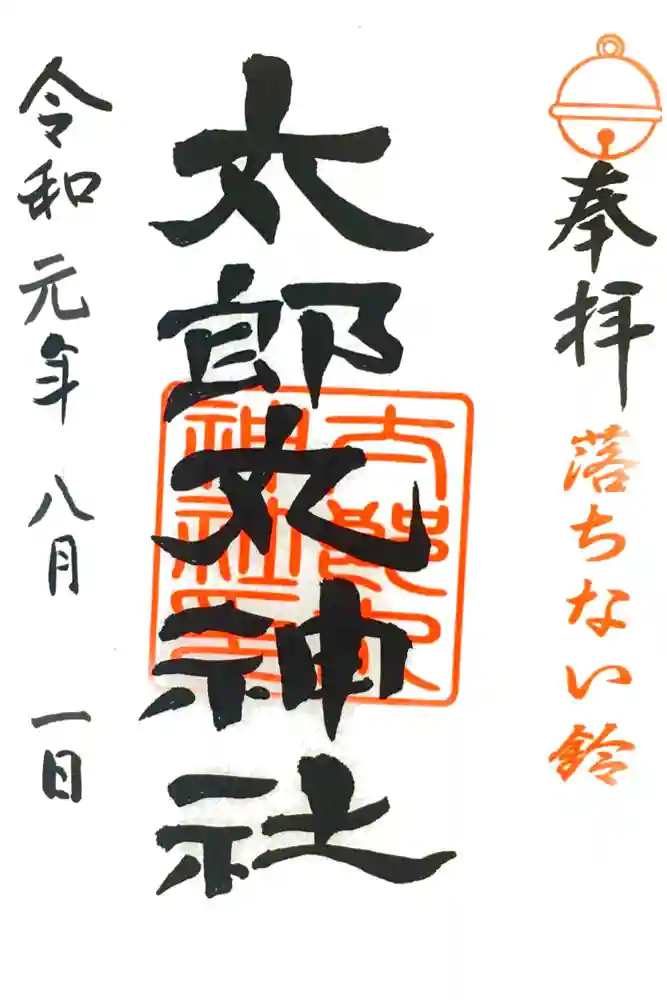 奉拝 落ちない鈴
太郎丸神社
令和元年 八月 一日